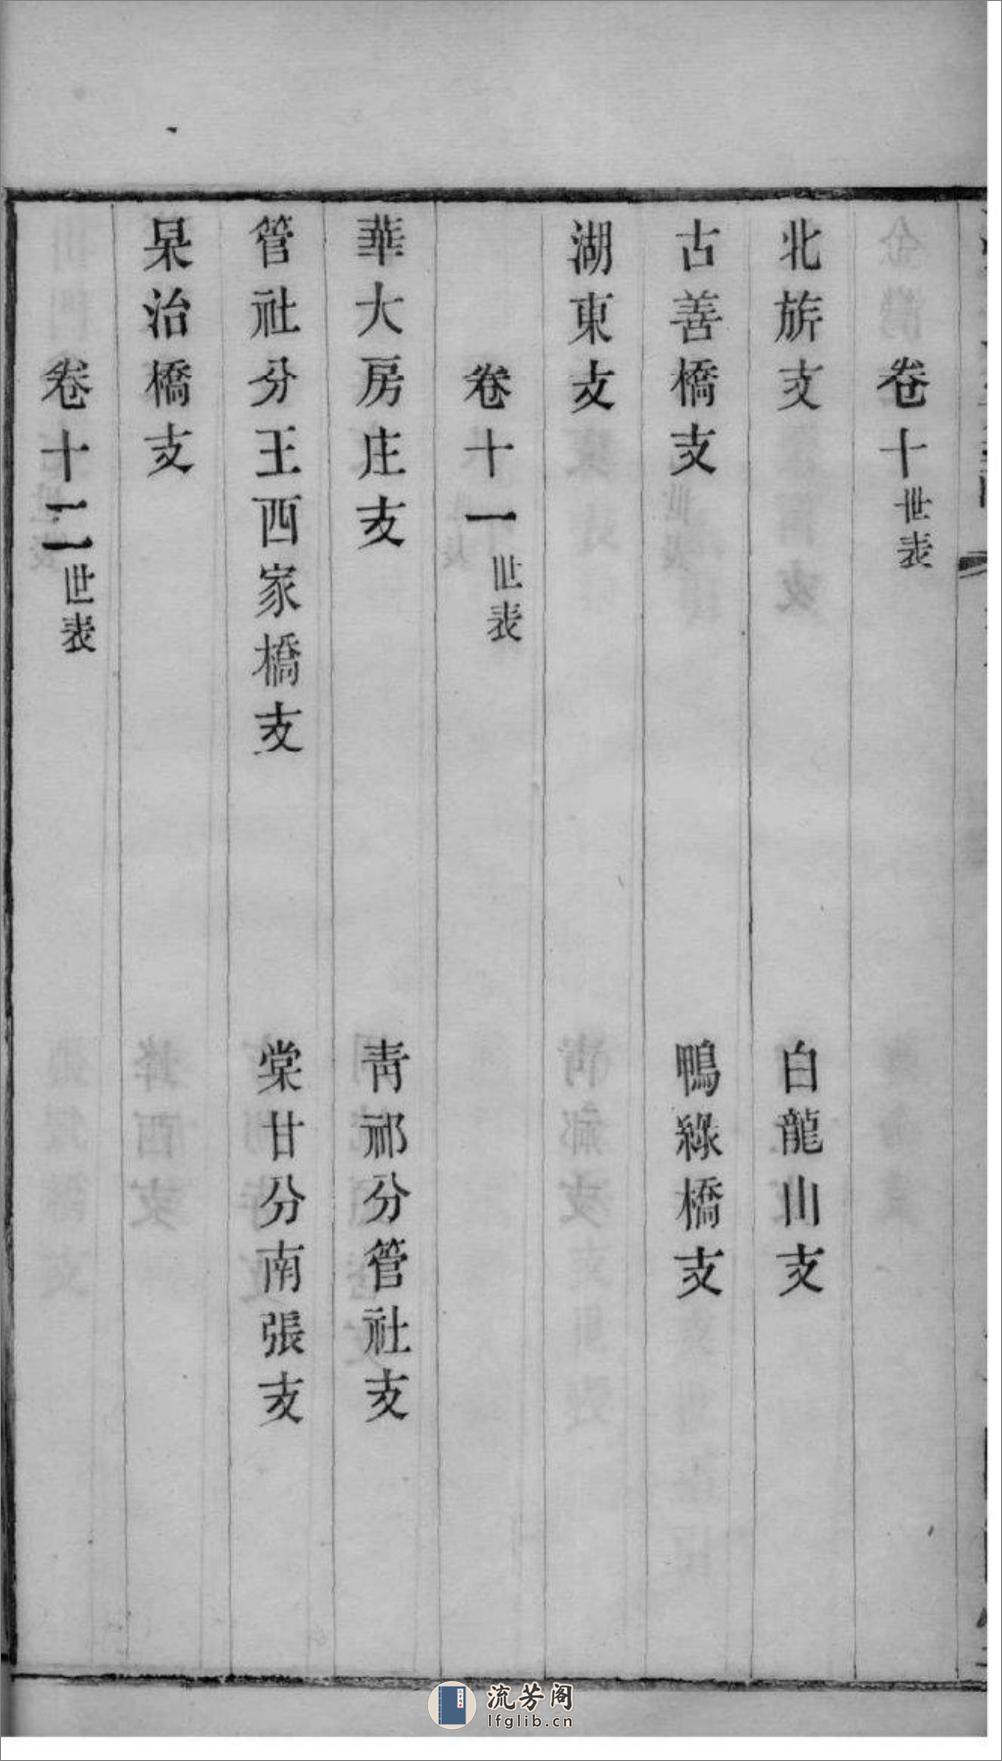 卷十世表
北旂支 白龍山支
古善橋支 鴨綠橋支
湖東支
卷十一世表
華大房庄支 青祁分管社支
管社分王西家橋支 棠甘分南張支
杲治橋支
卷十二世表
流芳阁
lfglib.cn